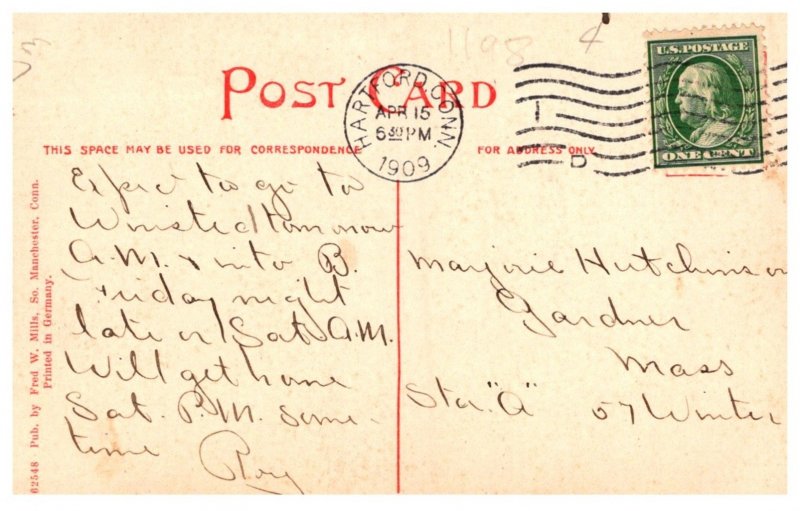 1198
POST CARD
THIS SPACE MAY BE USED FOR CORRESPONDENCE
FOR ADDRESS ONLY
HARTFORD, CONN.
APR 15
6 30 PM
1909
1
D
U.S. POSTAGE
ONE CENT
Expect to go to
Winsted tomorrow
A.M. & into B.
Friday night
late or Sat. A.M.
Will get home
Sat. P.M. some-
time Ray
Marjorie Hutchinson
Gardner
Mass
Sta. "A" 57 Winter
62548 Pub. by Fred W. Mills, So. Manchester, Conn.
Printed in Germany.